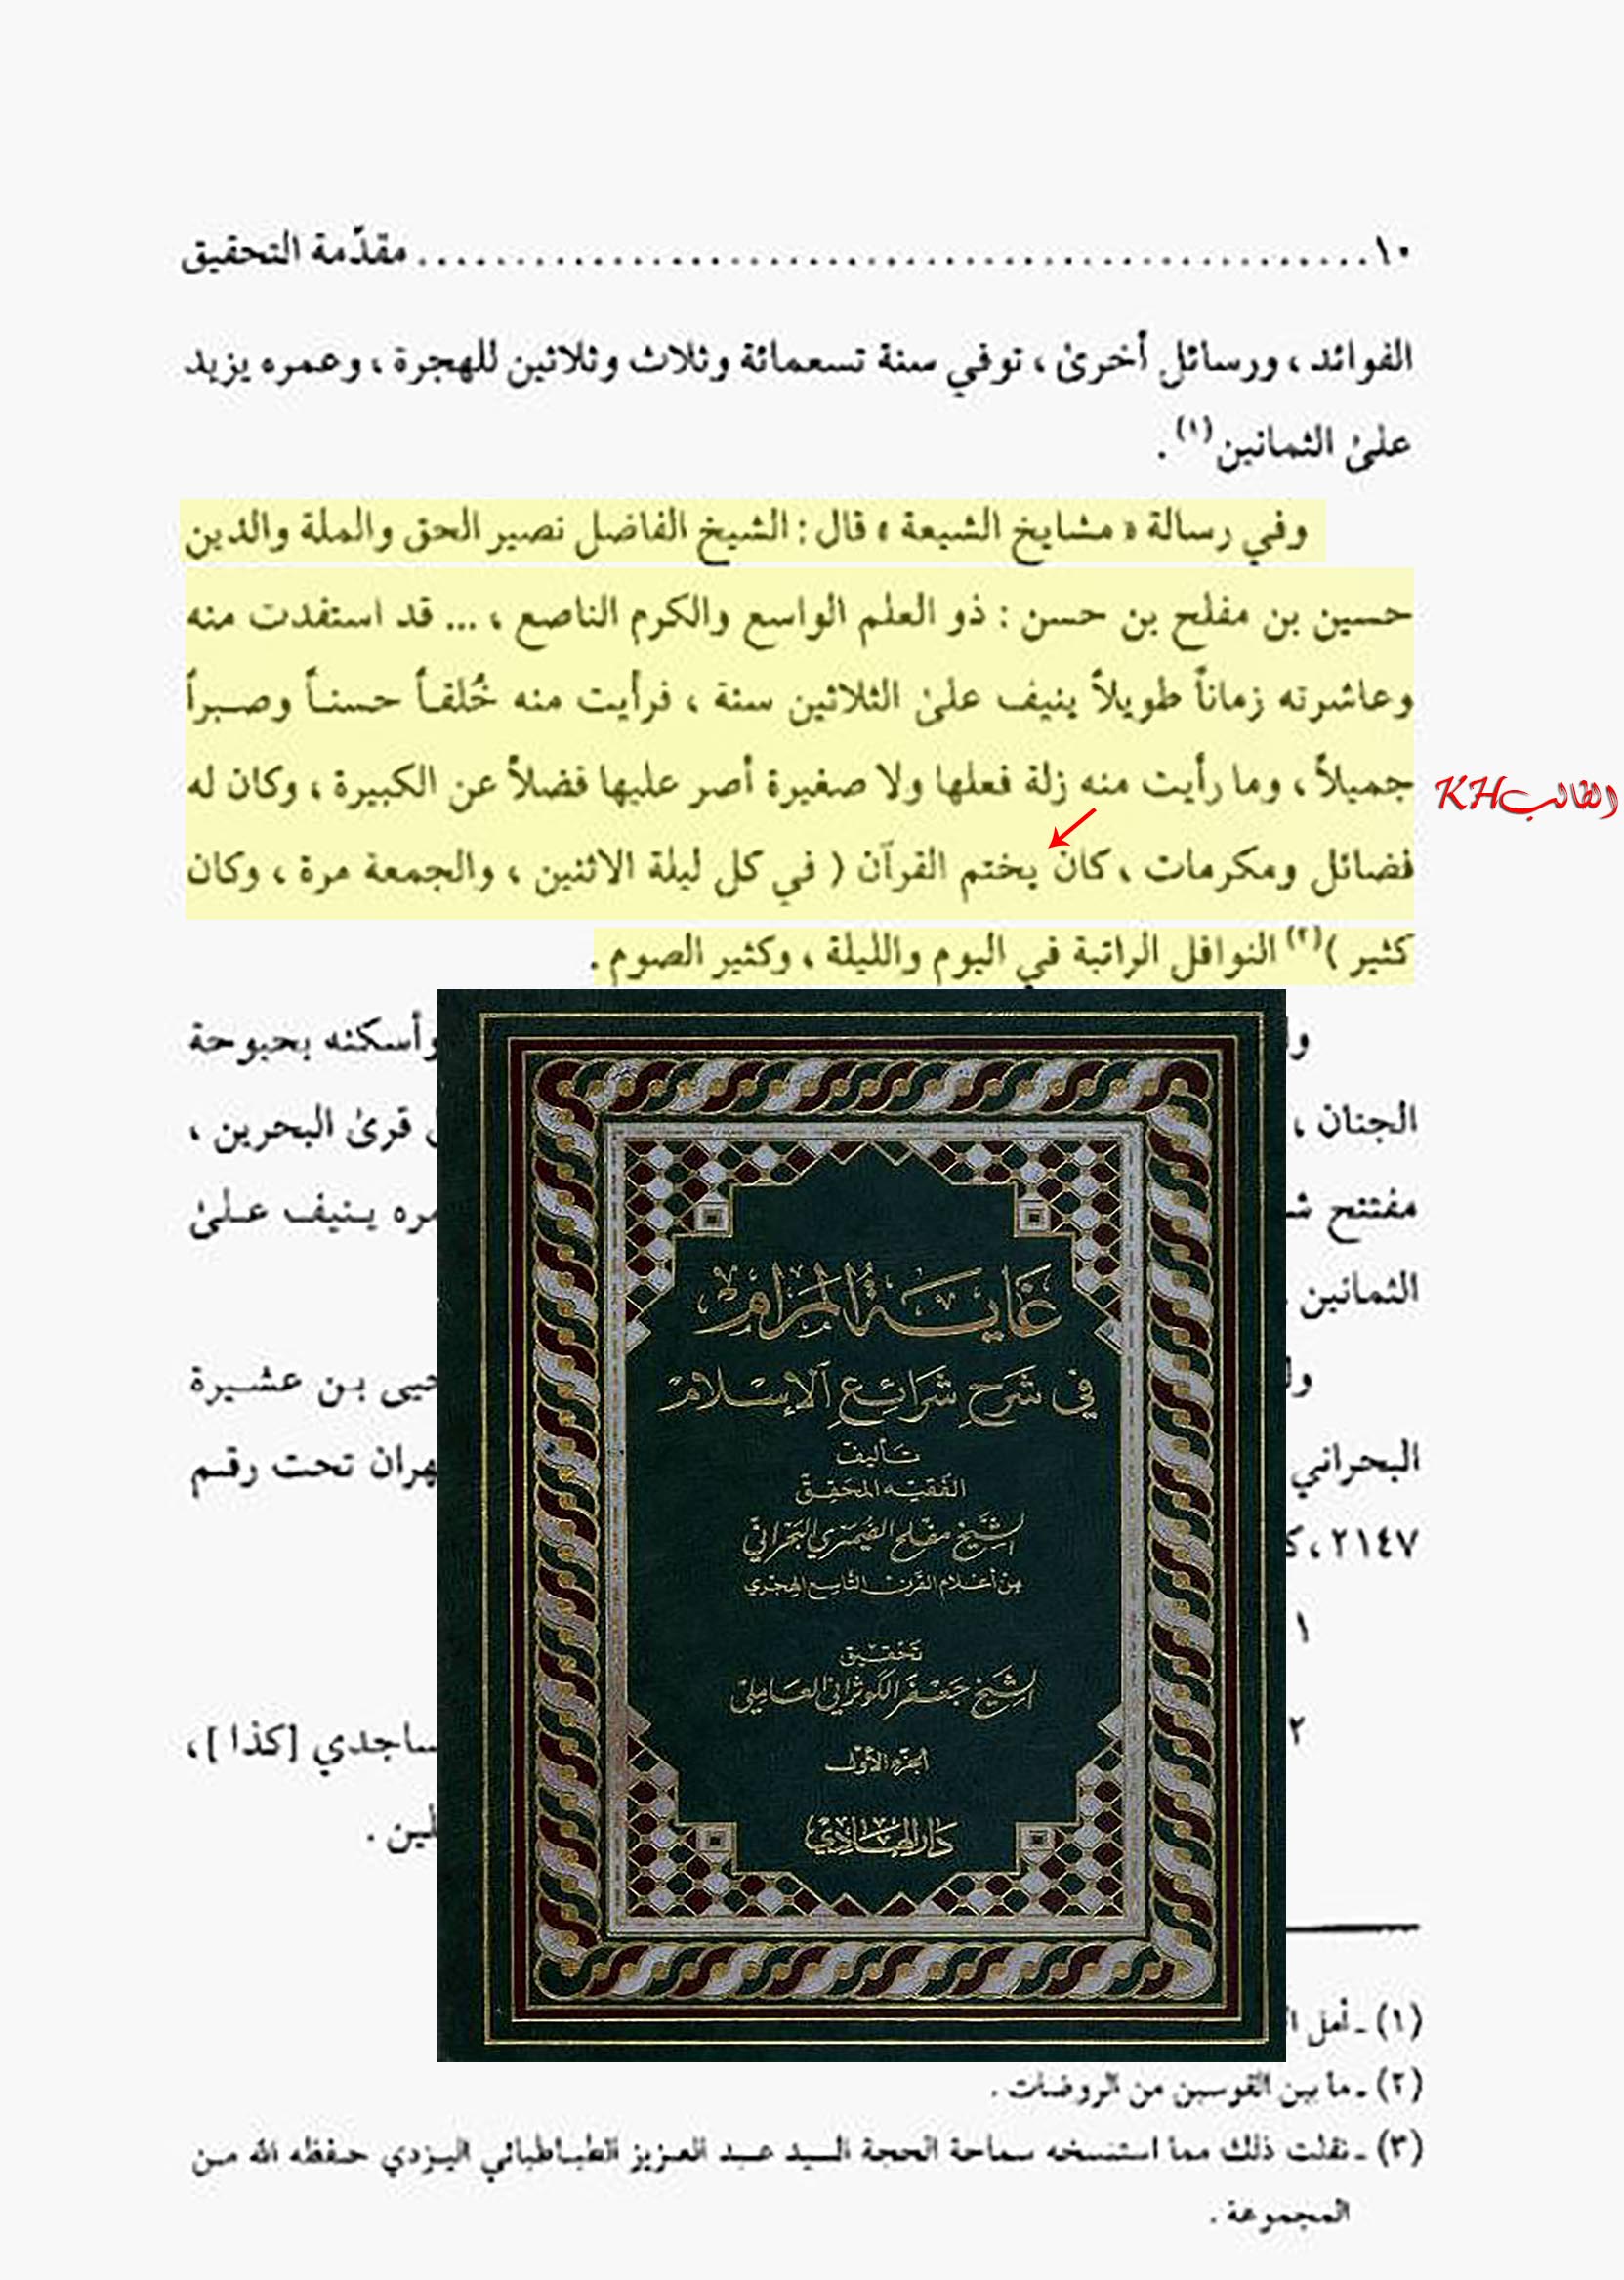 ١٠ ........................................................ مقدّمة التحقيق
الفوائد ، ورسائل أخرىٰ ، توفي سنة تسعمائة وثلاث وثلاثين للهجرة ، وعمره يزيد
علىٰ الثمانين(١) .
وفي رسالة « مشايخ الشيعة » قال : الشيخ الفاضل نصير الحق والملة والدين
حسين بن مفلح بن حسن : ذو العلم الواسع والكرم الناصع ، ... قد استفدت منه
وعاشرته زماناً طويلاً ينيف علىٰ الثلاثين سنة ، فرأيت منه خُلقـاً حسنـاً وصـبراً
جميلاً ، وما رأيت منه زلة فعلها ولا صغيرة أصر عليها فضلاً عن الكبيرة ، وكان له
الطالب KH
فضائل ومكرمات ، كان يختم القرآن ( في كل ليلة الاثنين ، والجمعة مرة ، وكان
كثير )(٢) النوافل الراتبة في اليوم والليلة ، وكثير الصوم .
وأسكنه بحبوحة
الجنان ، قرىٰ البحرين ،
مفتتح ينيف عـلىٰ
الثمانين
بـن عشـيرة
البحراني تحت رقـم
٢١٤٧ ،
١
٢ [كذا ] ،
غاية المرام
في شرح شرائع الإسلام
تأليف
الفقيه المحقق
الشيخ مفلح الصيمري البحراني
من أعلام القرن التاسع الهجري
تحقيق
الشيخ جعفر الكوثراني العاملي
الجزء الأول
دار الهادي
(١) ـ أمل
(٢) ـ ما بين القوسين من الروضات .
(٣) ـ نقلت ذلك مما استنسخه سماحة الحجة السـيد عـبد العـزيز الطبـاطبائي اليـزدي حـفظه الله مـن
المجموعة .